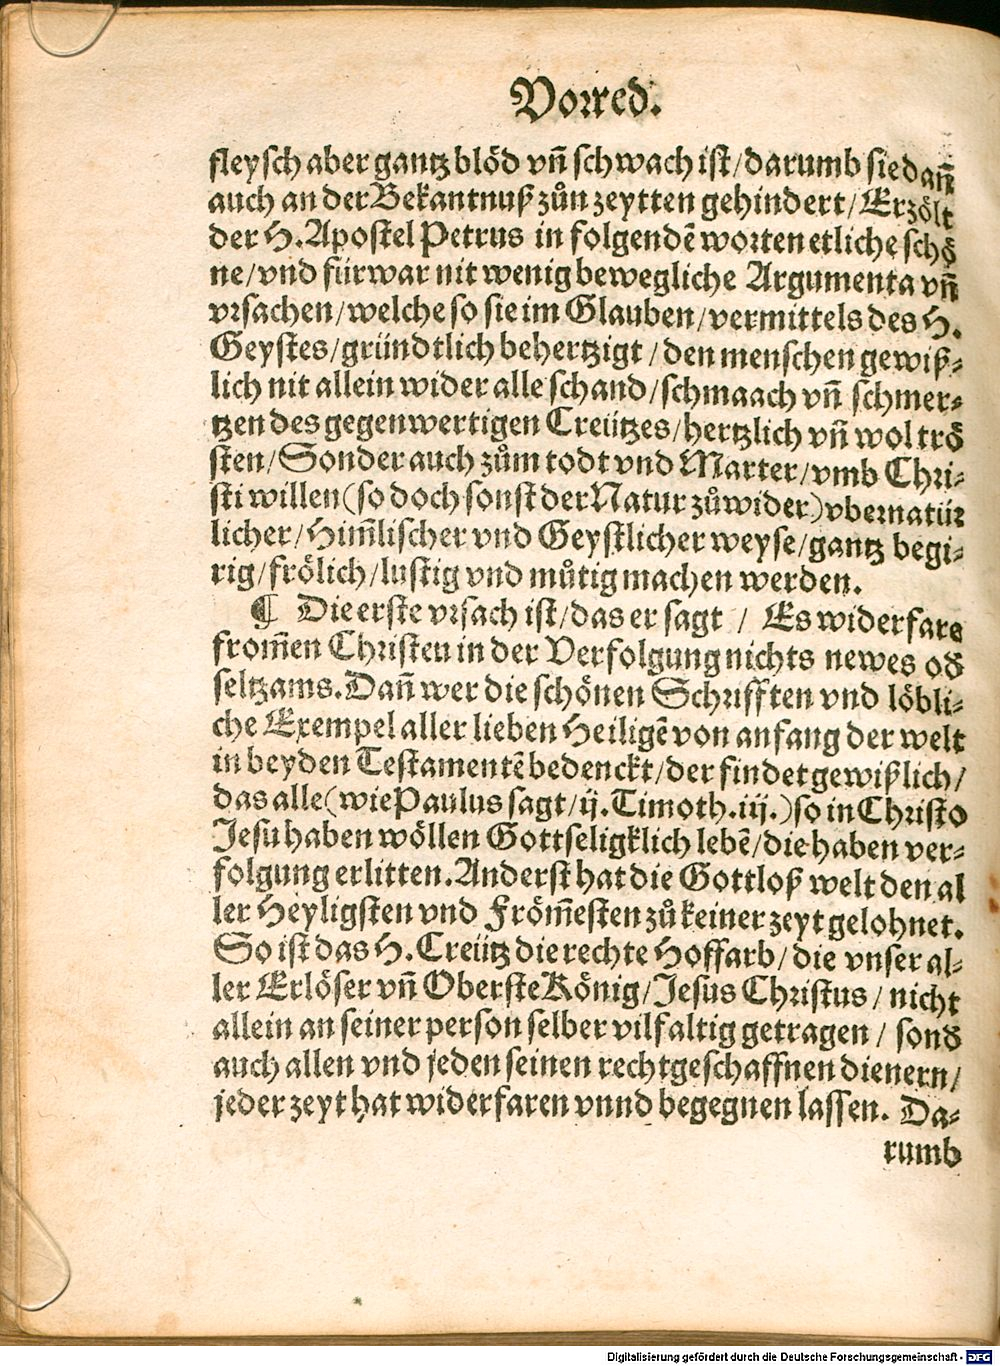 Vorred.
fleysch aber gantz blöd vñ schwach ist/darumb sie dañ
auch an der Bekantnuß zůn zeytten gehindert/Erzölt
der H. Apostel Petrus in folgendē worten etliche schö
ne/vnd fürwar nit wenig bewegliche Argumenta vñ
vrsachen/welche so sie im Glauben/vermittels des H.
Geystes/gründtlich behertzigt/den menschen gewiß-
lich nit allein wider alle schand/schmaach vñ schmer-
tzen des gegenwertigen Creützes/hertzlich vñ wol trö
sten/Sonder auch zům todt vnd Marter/vmb Chri-
sti willen(so doch sonst der Natur zůwider)vbernatür
licher/Him̃lischer vnd Geystlicher weyse/gantz begi-
rig/frölich/lustig vnd můtig machen werden.
¶ Die erste vrsach ist/das er sagt / Es widerfare
from̃en Christen in der Verfolgung nichts newes od
seltzams. Dañ wer die schönen Schrifften vnd löbli-
che Exempel aller lieben Heiligē von anfang der welt
in beyden Testamentē bedenckt/der findet gewißlich/
das alle(wie Paulus sagt/ij. Timoth. iij.)so in Christo
Jesu haben wöllen Gottseligklich lebē/die haben ver-
folgung erlitten. Anderst hat die Gottloß welt den al
ler Heyligsten vnd Fröm̃esten zů keiner zeyt gelohnet.
So ist das H. Creütz die rechte Hoffarb/die vnser al-
ler Erlöser vñ Oberste König/Jesus Christus/nicht
allein an seiner person selber vilfaltig getragen/ sond
auch allen vnd jeden seinen rechtgeschaffnen dienern/
jeder zeyt hat widerfaren vnnd begegnen lassen. Da-
rumb
Digitalisierung gefördert durch die Deutsche Forschungsgemeinschaft - DFG